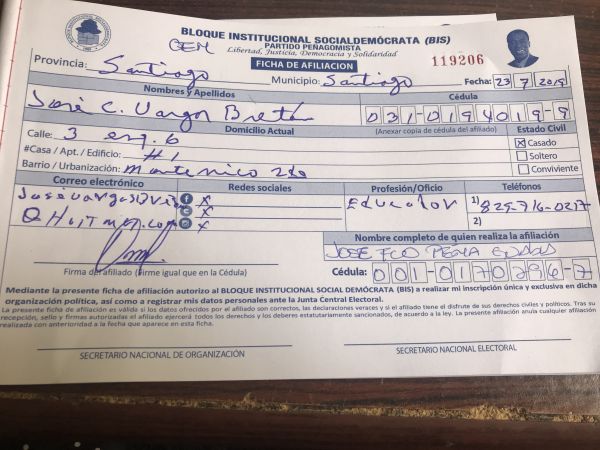 BLOQUE INSTITUCIONAL SOCIALDEMÓCRATA (BIS)
PARTIDO PEÑAGOMISTA
Libertad, Justicia, Democracia y Solidaridad
FICHA DE AFILIACION
119206
Provincia: Santiago Municipio: Santiago Fecha: 23 7 2018
Nombres y Apellidos Cédula
José C. Vargas 031-0194019-9
Domicilio Actual (Anexar copia de cédula del afiliado) Estado Civil
Calle: 3 esq. 6
Casado
#Casa / Apt. / Edificio: #1
Soltero
Barrio / Urbanización: 2do
Conviviente
Correo electrónico Redes sociales Profesión/Oficio Teléfonos
X Educador 1) 829-716-0217
X 2)
X
Nombre completo de quien realiza la afiliación
JOSE FCO PEÑA
Firma del afiliado (Firme igual que en la Cédula)
Cédula: 001-0170296-7
Mediante la presente ficha de afiliación autorizo al BLOQUE INSTITUCIONAL SOCIAL DEMÓCRATA (BIS) a realizar mi inscripción única y exclusiva en dicha
organización política, así como a registrar mis datos personales ante la Junta Central Electoral.
La presente ficha de afiliación es válida si los datos ofrecidos por el afiliado son correctos, las declaraciones veraces y si el afiliado tiene el disfrute de sus derechos civiles y políticos. Tras su
recepción, sello y firmas autorizadas el afiliado ejercerá todos los derechos y los deberes estatutariamente sancionados, de acuerdo a la ley. La presente afiliación anula cualquier afiliación
realizada con anterioridad a la fecha que aparece en esta ficha.
SECRETARIO NACIONAL DE ORGANIZACIÓN SECRETARIO NACIONAL ELECTORAL